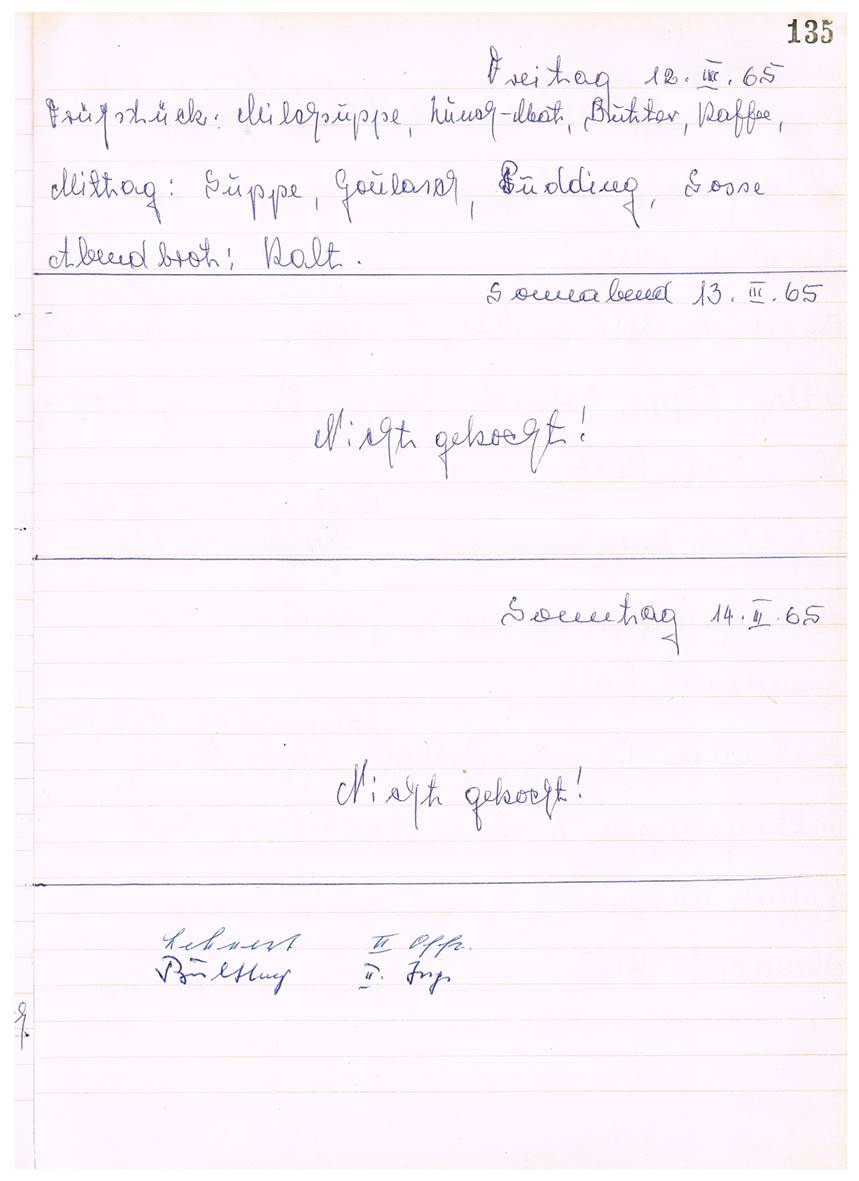 135
Freitag 12. III. 65
Frühstück: Milchsuppe, Butter, Kaffee,
Mittag: Suppe, Goulasch, Pudding, Sosse
Abendbrot: Kalt.
Sonnabend 13. III. 65
Nicht gekocht!
Sonntag 14. II. 65
Nicht gekocht!
Lehnert II Offz.
II. Ing.